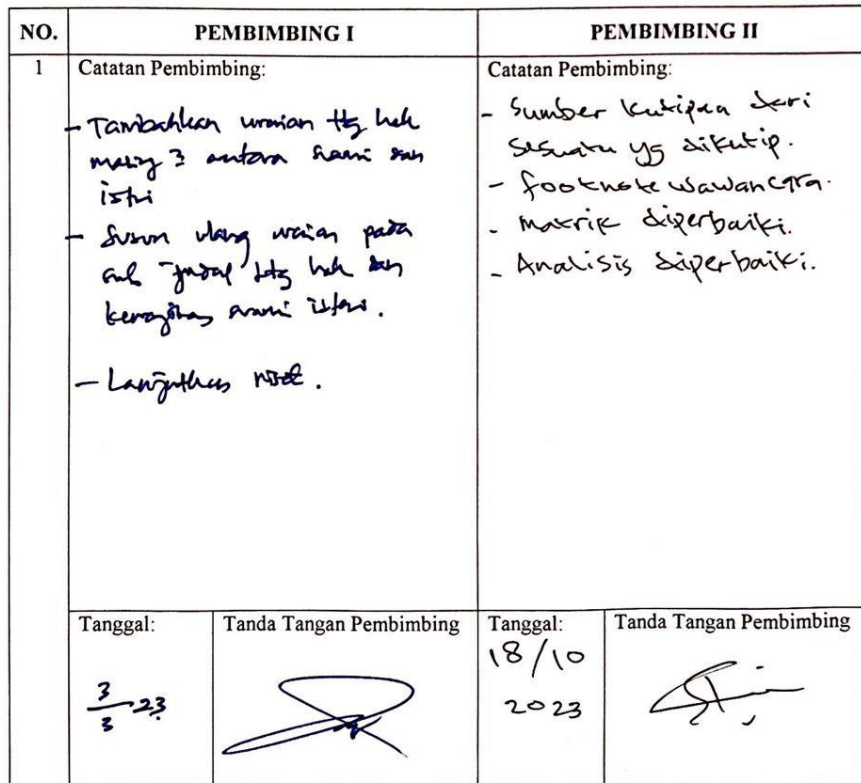 NO.
PEMBIMBING I
PEMBIMBING II
1
Catatan Pembimbing:
- Tambahkan uraian ttg hak
masing 3 antara suami dan
istri
- Susun ulang uraian pada
sub judul ttg hak dan
kewajiban suami isteri.
- Lanjutkan riset.
Catatan Pembimbing:
- Sumber kutipan dari
sesuatu yg dikutip.
- footnote wawancara.
- Matrik diperbaiki.
- Analisis diperbaiki.
Tanggal:
3/3 23
Tanda Tangan Pembimbing
Tanggal:
18/10
2023
Tanda Tangan Pembimbing